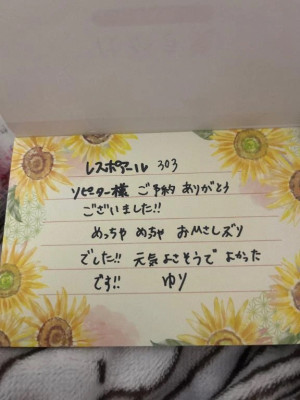 レスポアール 303
ソピター様 ご予約 ありがとう
ございました!!
めっちゃ めちゃ おひさしズリ
でした!! 元気 よさそうで よかった
です!! ゆり